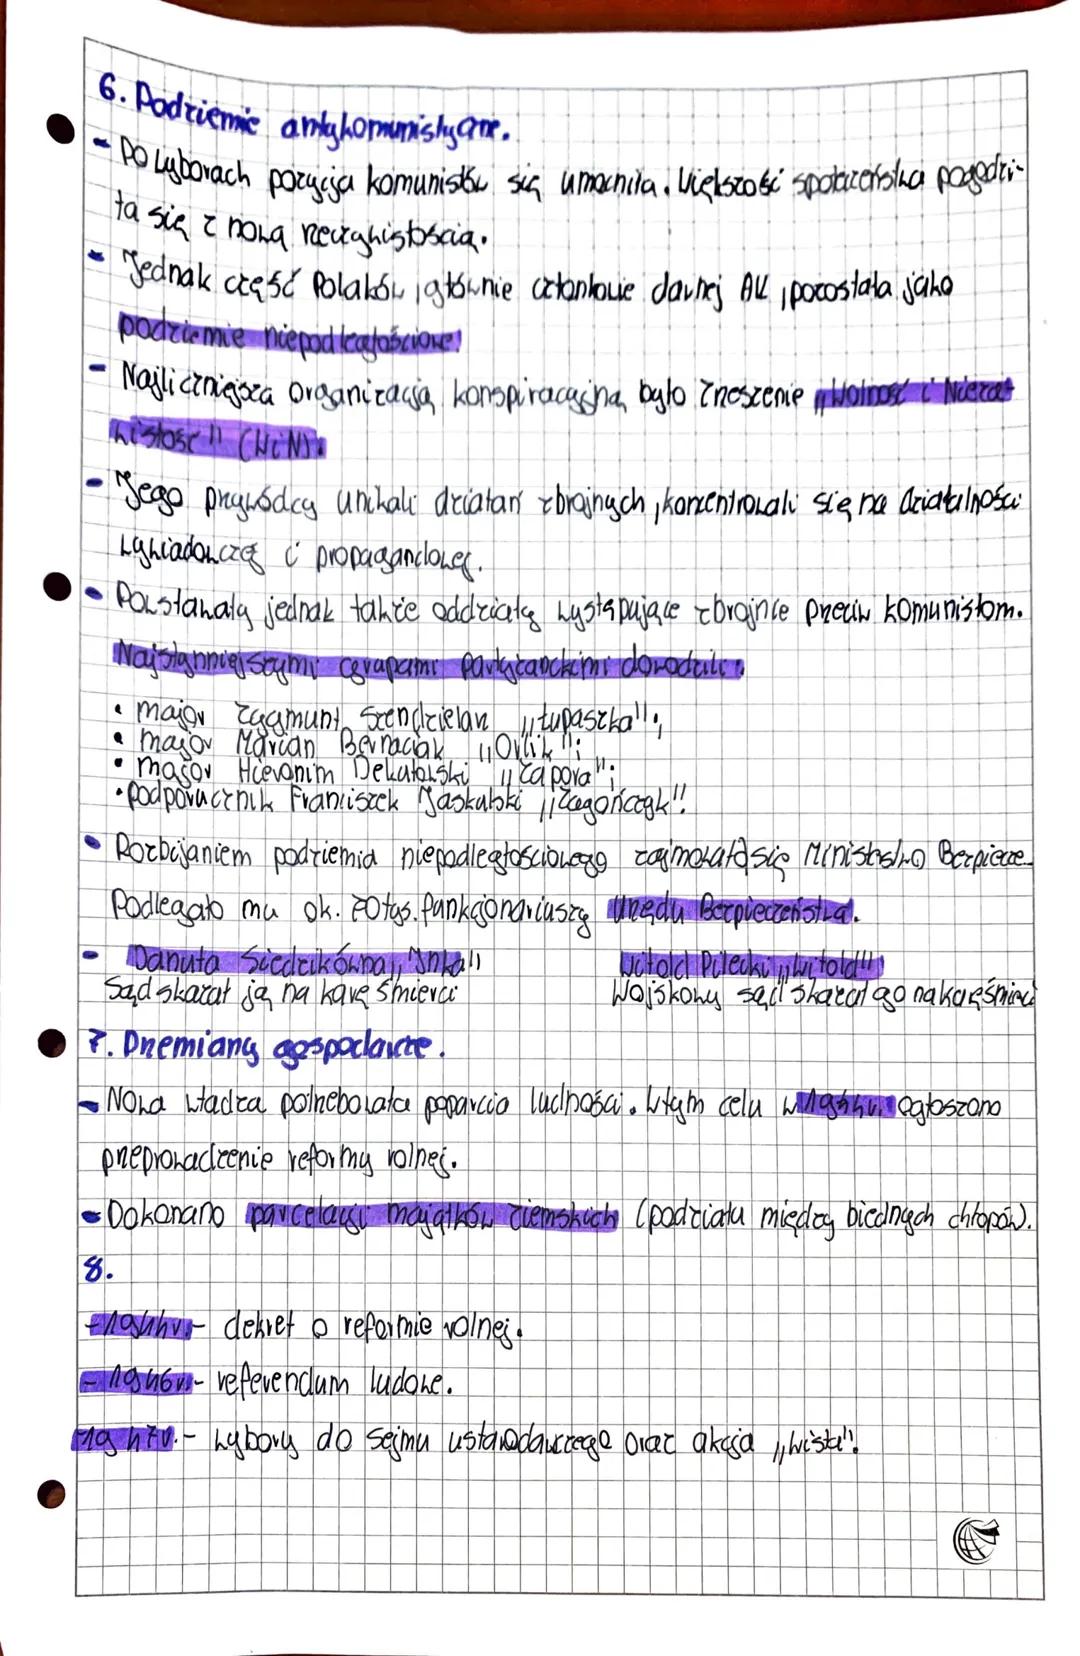 6. Podziemie antykomunistyczne.
- Po wyborach pozycja komunistów się umocniła. Większość społeczeństwa pogodzi-
ła się z nową rzeczywistością.
- Jednak część Polaków, głównie członkowie dawnej AK, pozostała jako
podziemie niepodległościowe!
- Najliczniejszą organizacją konspiracyjną było Zrzeszenie „Wolność i Niezaw-
wisłość" (WiN).
- Jego przywódcy unikali działań zbrojnych, koncentrowali się na działalności
wywiadowczej i propagandowej.
- Powstawały jednak także oddziały występujące zbrojnie przeciw komunistom.
Najsłynniejszymi grupami partyzanckimi dowodzili:
• major Zygmunt Szendzielarz „Łupaszka";
• major Marian Bernaciak „Orlik";
• major Hieronim Dekutowski „Zapora";
• podporucznik Franciszek Jaskulski „Zagończyk"!
- Rozbijaniem podziemia niepodległościowego zajmowało się Ministerstwo Bezpiecze.
Podlegało mu ok. 20 tys. funkcjonariuszy Urzędu Bezpieczeństwa.
- Danuta Siedzikówna „Inka" Witold Pilecki „Witold"
Sąd skazał ją na karę śmierci Wojskowy sąd skazał go na karę śmierci
7. Przemiany gospodarcze.
- Nowa władza potrzebowała poparcia ludności. W tym celu w 1944r. ogłoszono
przeprowadzenie reformy rolnej.
- Dokonano parcelacji majątków ziemskich (podziału między biednych chłopów).
8.
- 1944r. - dekret o reformie rolnej.
- 1946r. - referendum ludowe.
- 1947r. - wybory do Sejmu ustawodawczego oraz akcja „Wisła".